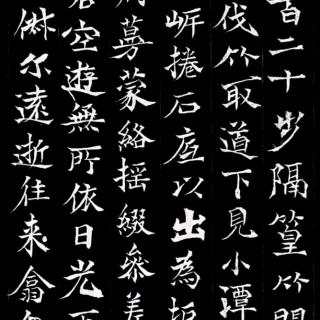 百二十步隔篁竹聞
伐竹取道下見小潭
岍捲石底以出為坻
蔓蒙絡摇綴叅差
若空遊無所依日光下
俶尔遠逝往來翕